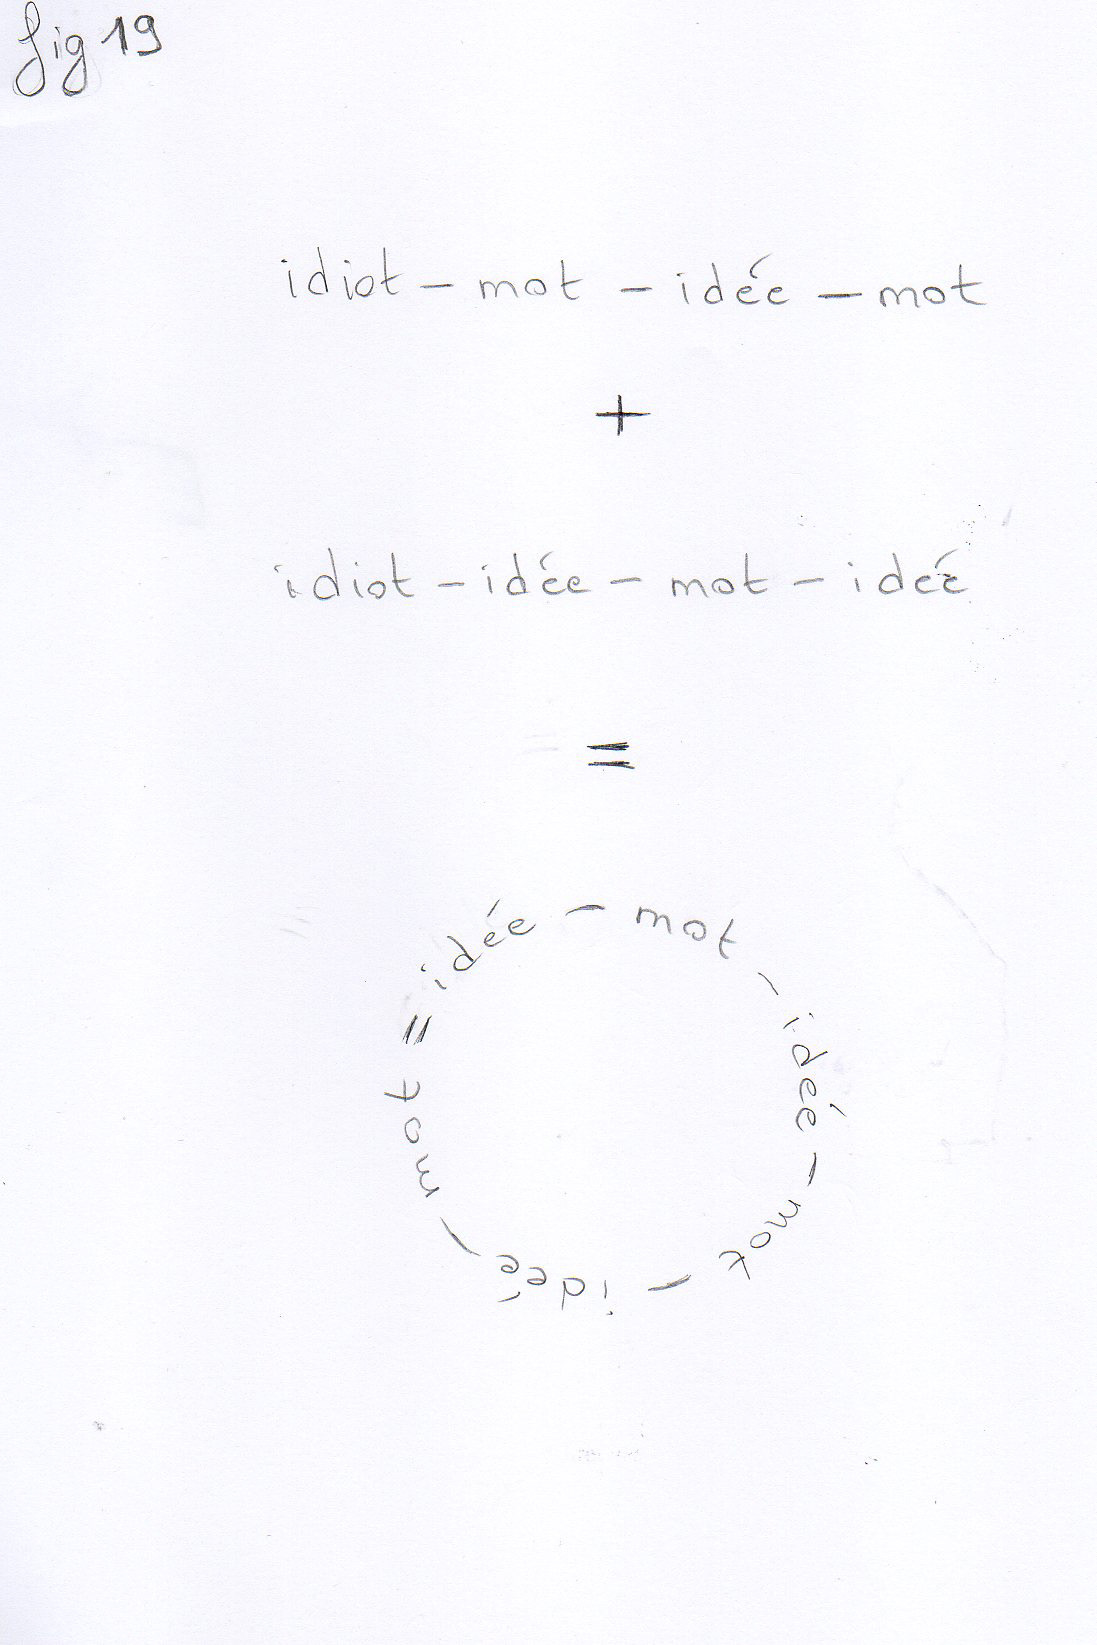 fig 19
idiot - mot - idée - mot
+
idiot - idée - mot - idée
=
idée - mot - idée - mot - idée - mot =